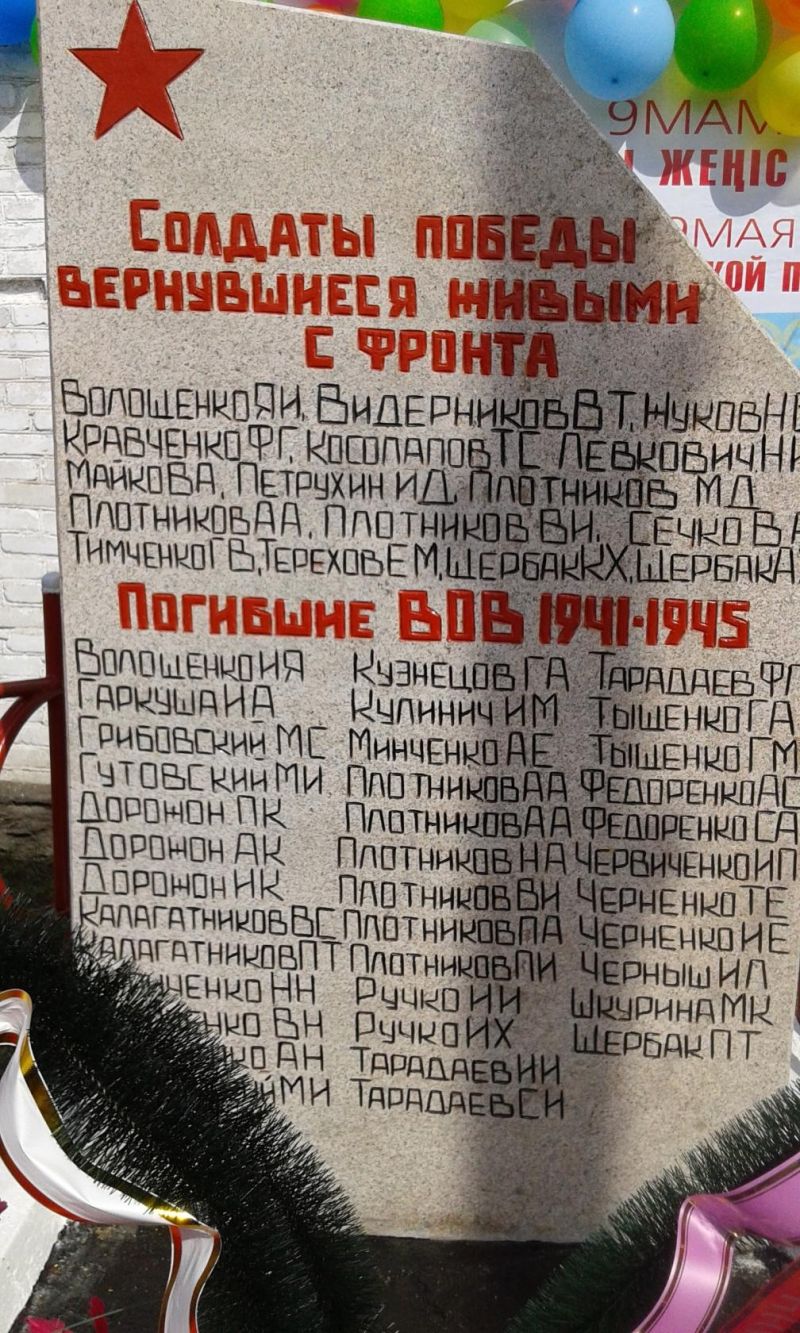 9МАМ
ЖЕҢІС
9МАЯ
Солдаты победы
вернувшиеся живыми
с фронта
Волощенко Я И, Видерников В Т, Жуков Н
Кравченко Ф Г, Косолапов Т С Левкович Н И
Майков В А, Петрухин И Д, Плотников М Д
Плотников А А, Плотников В И, Сечко В А
Тимченко Г В, Терехов Е М, Щербак К Х, Щербак А
Погибшие ВОВ 1941-1945
Волощенко И Я Кузнецов Г А Тарадаев Ф Г
Гаркуша И А Кулинич И М Тыщенко Г А
Грибовский М С Минченко А Е Тыщенко Г М
Гутовский М И Плотников А А Федоренко А С
Дорожон П К Плотников А А Федоренко С А
Дорожон А К Плотников Н А Червиченко И П
Дорожон И К Плотников В И Черненко Т Е
Калагатников В С Плотников П А Черненко И Е
Калагатников П Т Плотников П И Черныш И Л
Н Н Ручко И И Шкурина М К
В Н Ручко И Х Щербак П Т
А Н Тарадаев И И
М И Тарадаев С И